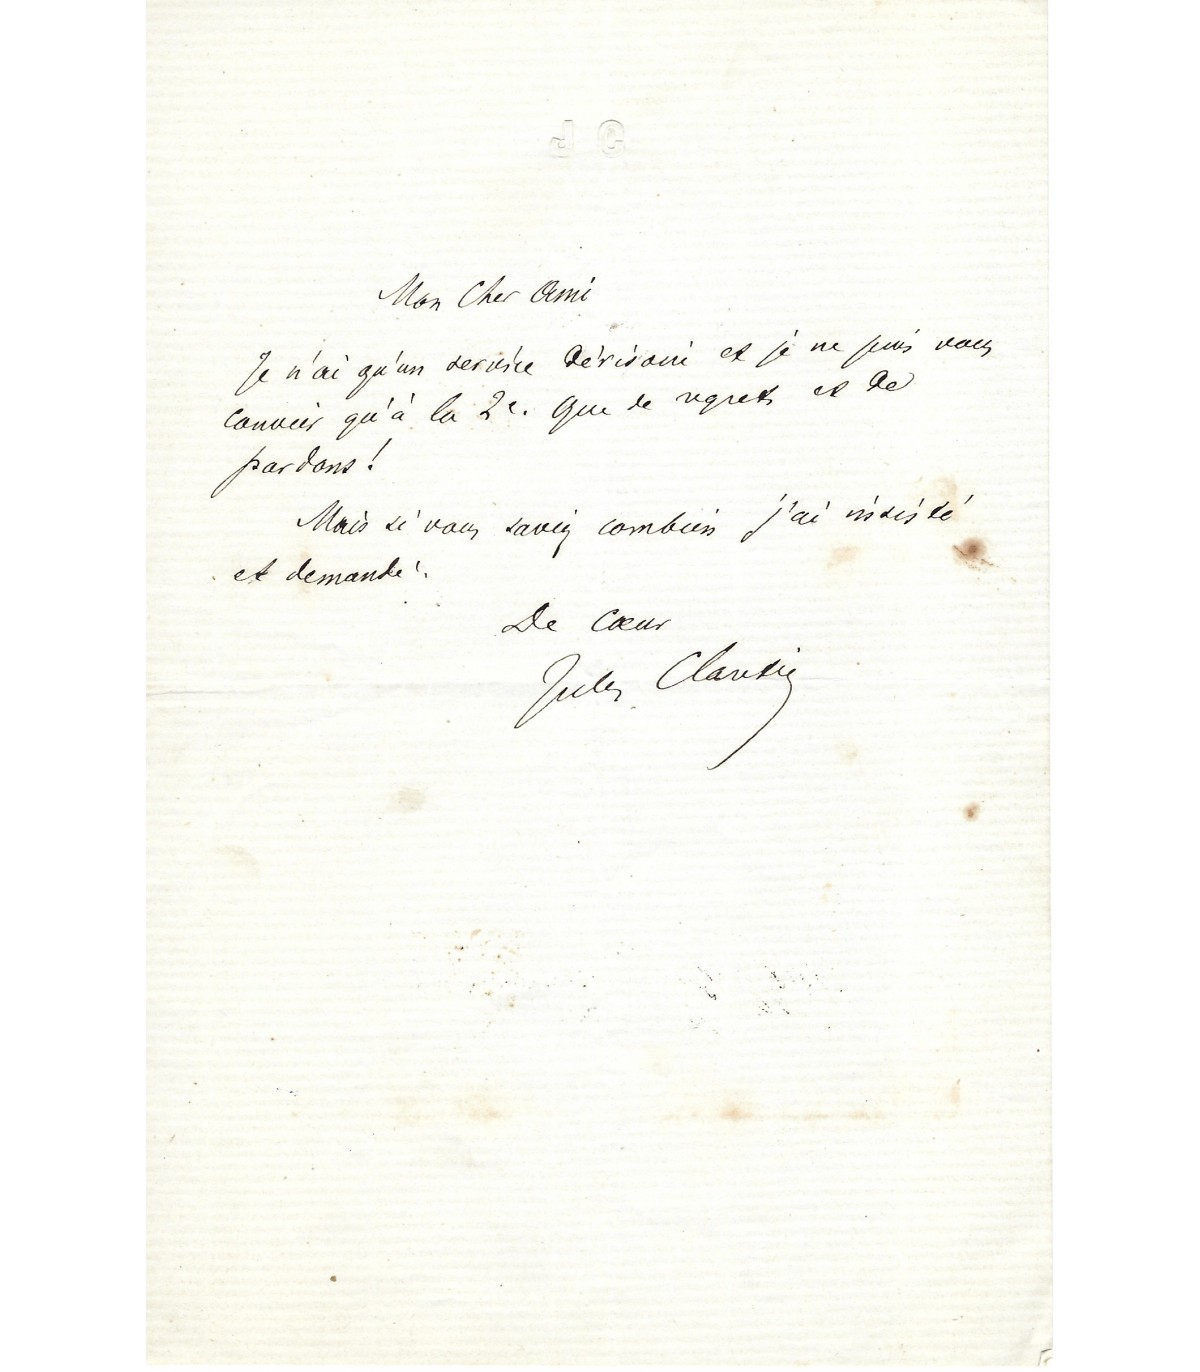 Mon Cher Ami
Je n'ai qu'un service dérisoire et je ne puis vous
convier qu'à la 2e. Que de regrets et de
pardons !
Mais si vous saviez combien j'ai insisté
et demandé.
De Cœur
Jules Claretie